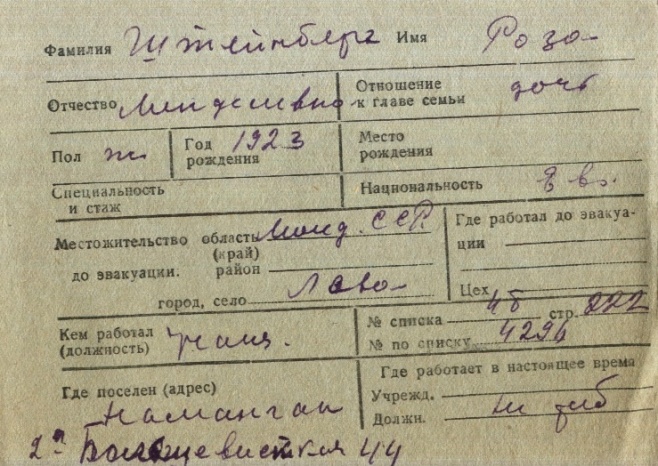 Фамилия Штейнберг Имя Роза
Отчество Менделевна Отношение к главе семьи дочь
Пол ж. Год рождения 1923 Место рождения
Специальность и стаж Национальность Евр.
Местожительство до эвакуации. область (край) Молд. ССР Где работал до эвакуации
район
город, село Цех
Кем работал (должность) учащ. № списка 48 стр. 222
№ по списку 4296
Где поселен (адрес) Где работает в настоящее время
Наманган Учрежд.
Должн.
2ая Большевистская 44